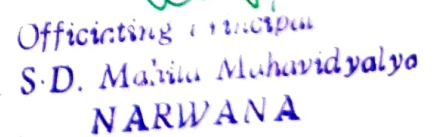 Officiating Principal
S.D. Mahila Mahavidyalya
NARWANA